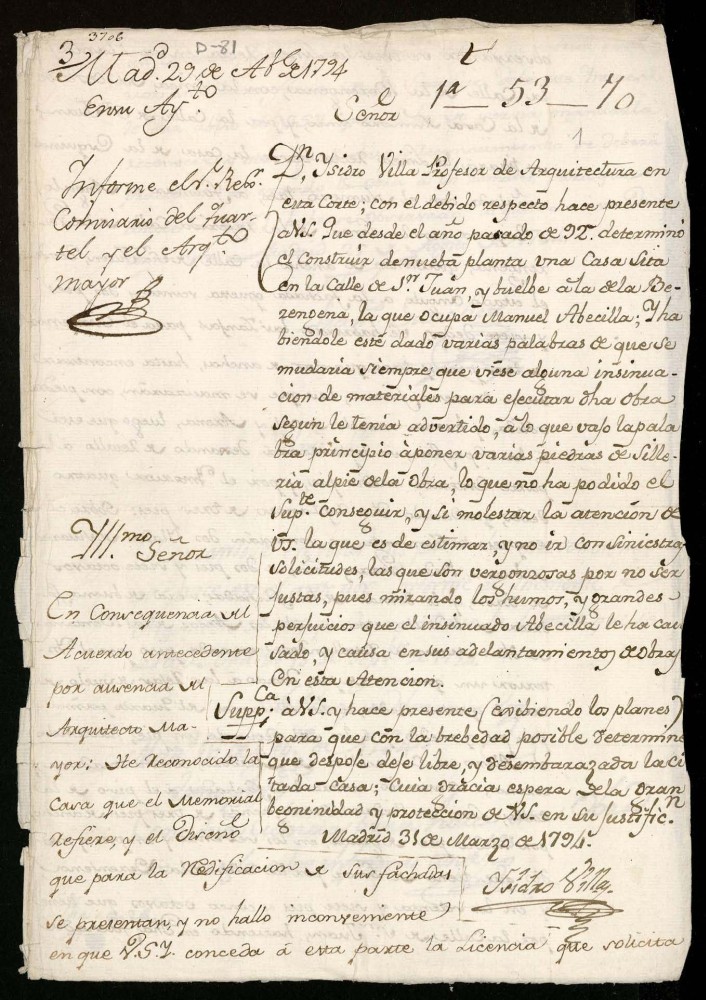 3706
D-81
3
Mad.d 29 de Ab.l de 1794
En su Ay.to
Señor
1a — 53 — 70
1
Informe el S.r Rex.r
Comisario del Quar-
tel y el Arq.to
mayor
D.n Ysidro Villa Profesor de Arquitectura en
esta Corte; con el debido respecto hace presente
a VS. Que desde el año pasado de 92. determinó
el construir de nueba planta una Casa Sita
en la Calle de S.n Juan, y buelbe à la de la Be-
rengena, la que ocupa Manuel Abecilla; Y ha
biendole este dado varias palabras de que se
mudaria siempre que viese alguna insinua-
cion de materiales para ejecutar dha obra
segun le tenia advertido, à lo que vajo la pala
bra principio à poner varias piedras de Sille-
ria al pie de la Obra, lo que no ha podido el
Sup.te conseguir, y si molestar la atencion de
VS. la que es de estimar, y no ir con siniestras
solicitudes, las que son vergonzosas por no ser
justas, pues mirando los humos, y grandes
perjuicios que el insinuado Abecilla le ha cau
sado, y causa en sus adelantamientos de obras
En esta Atencion.
Supp.ca à VS. y hace presente (exibiendo los planes)
para que con la brebedad posible determine
que despoje deje libre, y desembarazada la ci
tada casa; Cuia Gracia espera de la gran
beoninidad y proteccion de VS. en su justific.n
Madrid 31 de Marzo de 1794.
Ysidro Villa
Yll.mo Señor
En Consequencia del
Acuerdo antecedente
por ausencia del
Arquitecto Ma-
yor: He reconocido la
Casa que el Memorial
refiere, y el Diseño
que para la Redificacion de sus fachadas
se presentan, y no hallo inconveniente
en que V.S.I. conceda á esta parte la Licencia que solicita